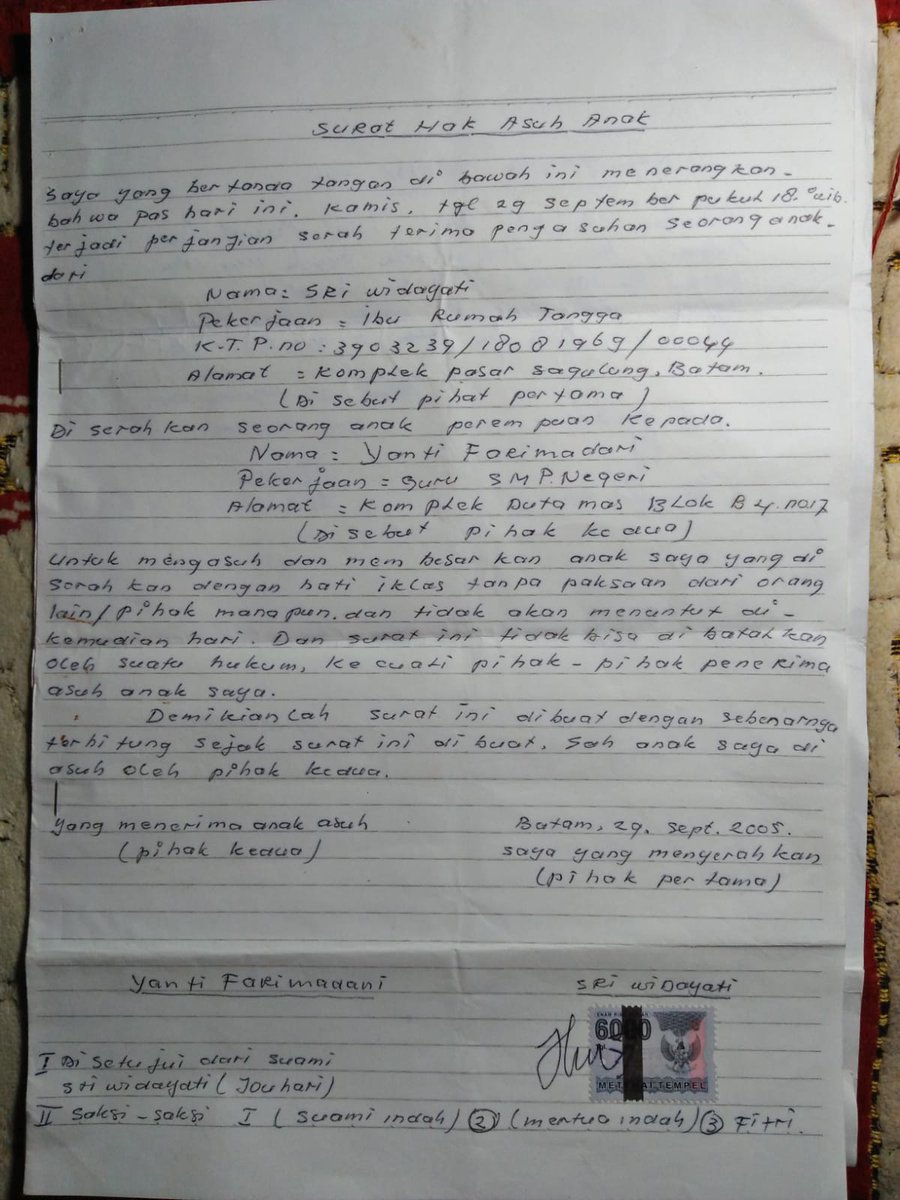 Surat Hak Asuh Anak
Saya yang ber tanda tangan di bawah ini menerangkan-
bah wa pas hari ini. Kamis, tgl 29 septem ber pukul 18.°° wib.
terjadi per janjian serah terima penga suhan seorang anak-
dari
Nama: SRi widayati
Peker jaan = ibu Rumah Tangga
K.T.P.no : 3903239/18081969/00044
Alamat = Komplek pasar sagulung, Batam.
(Di sebut pihat pertama)
Di serah kan seorang anak perem puan kepada.
Nama = Yanti Farimadari
Peker jaan = Guru SMP. Negeri
Alamat = Kom plek Duta mas Blok B 4. no.17
(Di sebut pihak kedua)
Untuk mengasuh dan mem besar kan anak saya yang di
serah kan dengan hati iklas tanpa paksaan dari orang
lain/pihak mana pun. dan tidak akan menuntut di-
kemudian hari. Dan surat ini tidak bisa di batalkan
oleh suatu hukum, ke cuali pihak - pihak penerima
asuh anak saya.
Demikian Lah surat ini dibuat dengan sebenarnya
terhi tung sejak surat ini di buat. Sah anak saya di
asuh oleh pihak kedua.
yang menerima anak asuh
(pihak kedua)
Batam, 29. Sept. 2005.
saya yang menyerah kan
(pihak per tama)
Yanti Farimadani
SRi wiDayati
6000
METERAI TEMPEL
I Di setu jui dari suami
sri widayati (Jouhari)
II Saksi - saksi I (suami indah) ② (mertua indah) ③ Fitri.